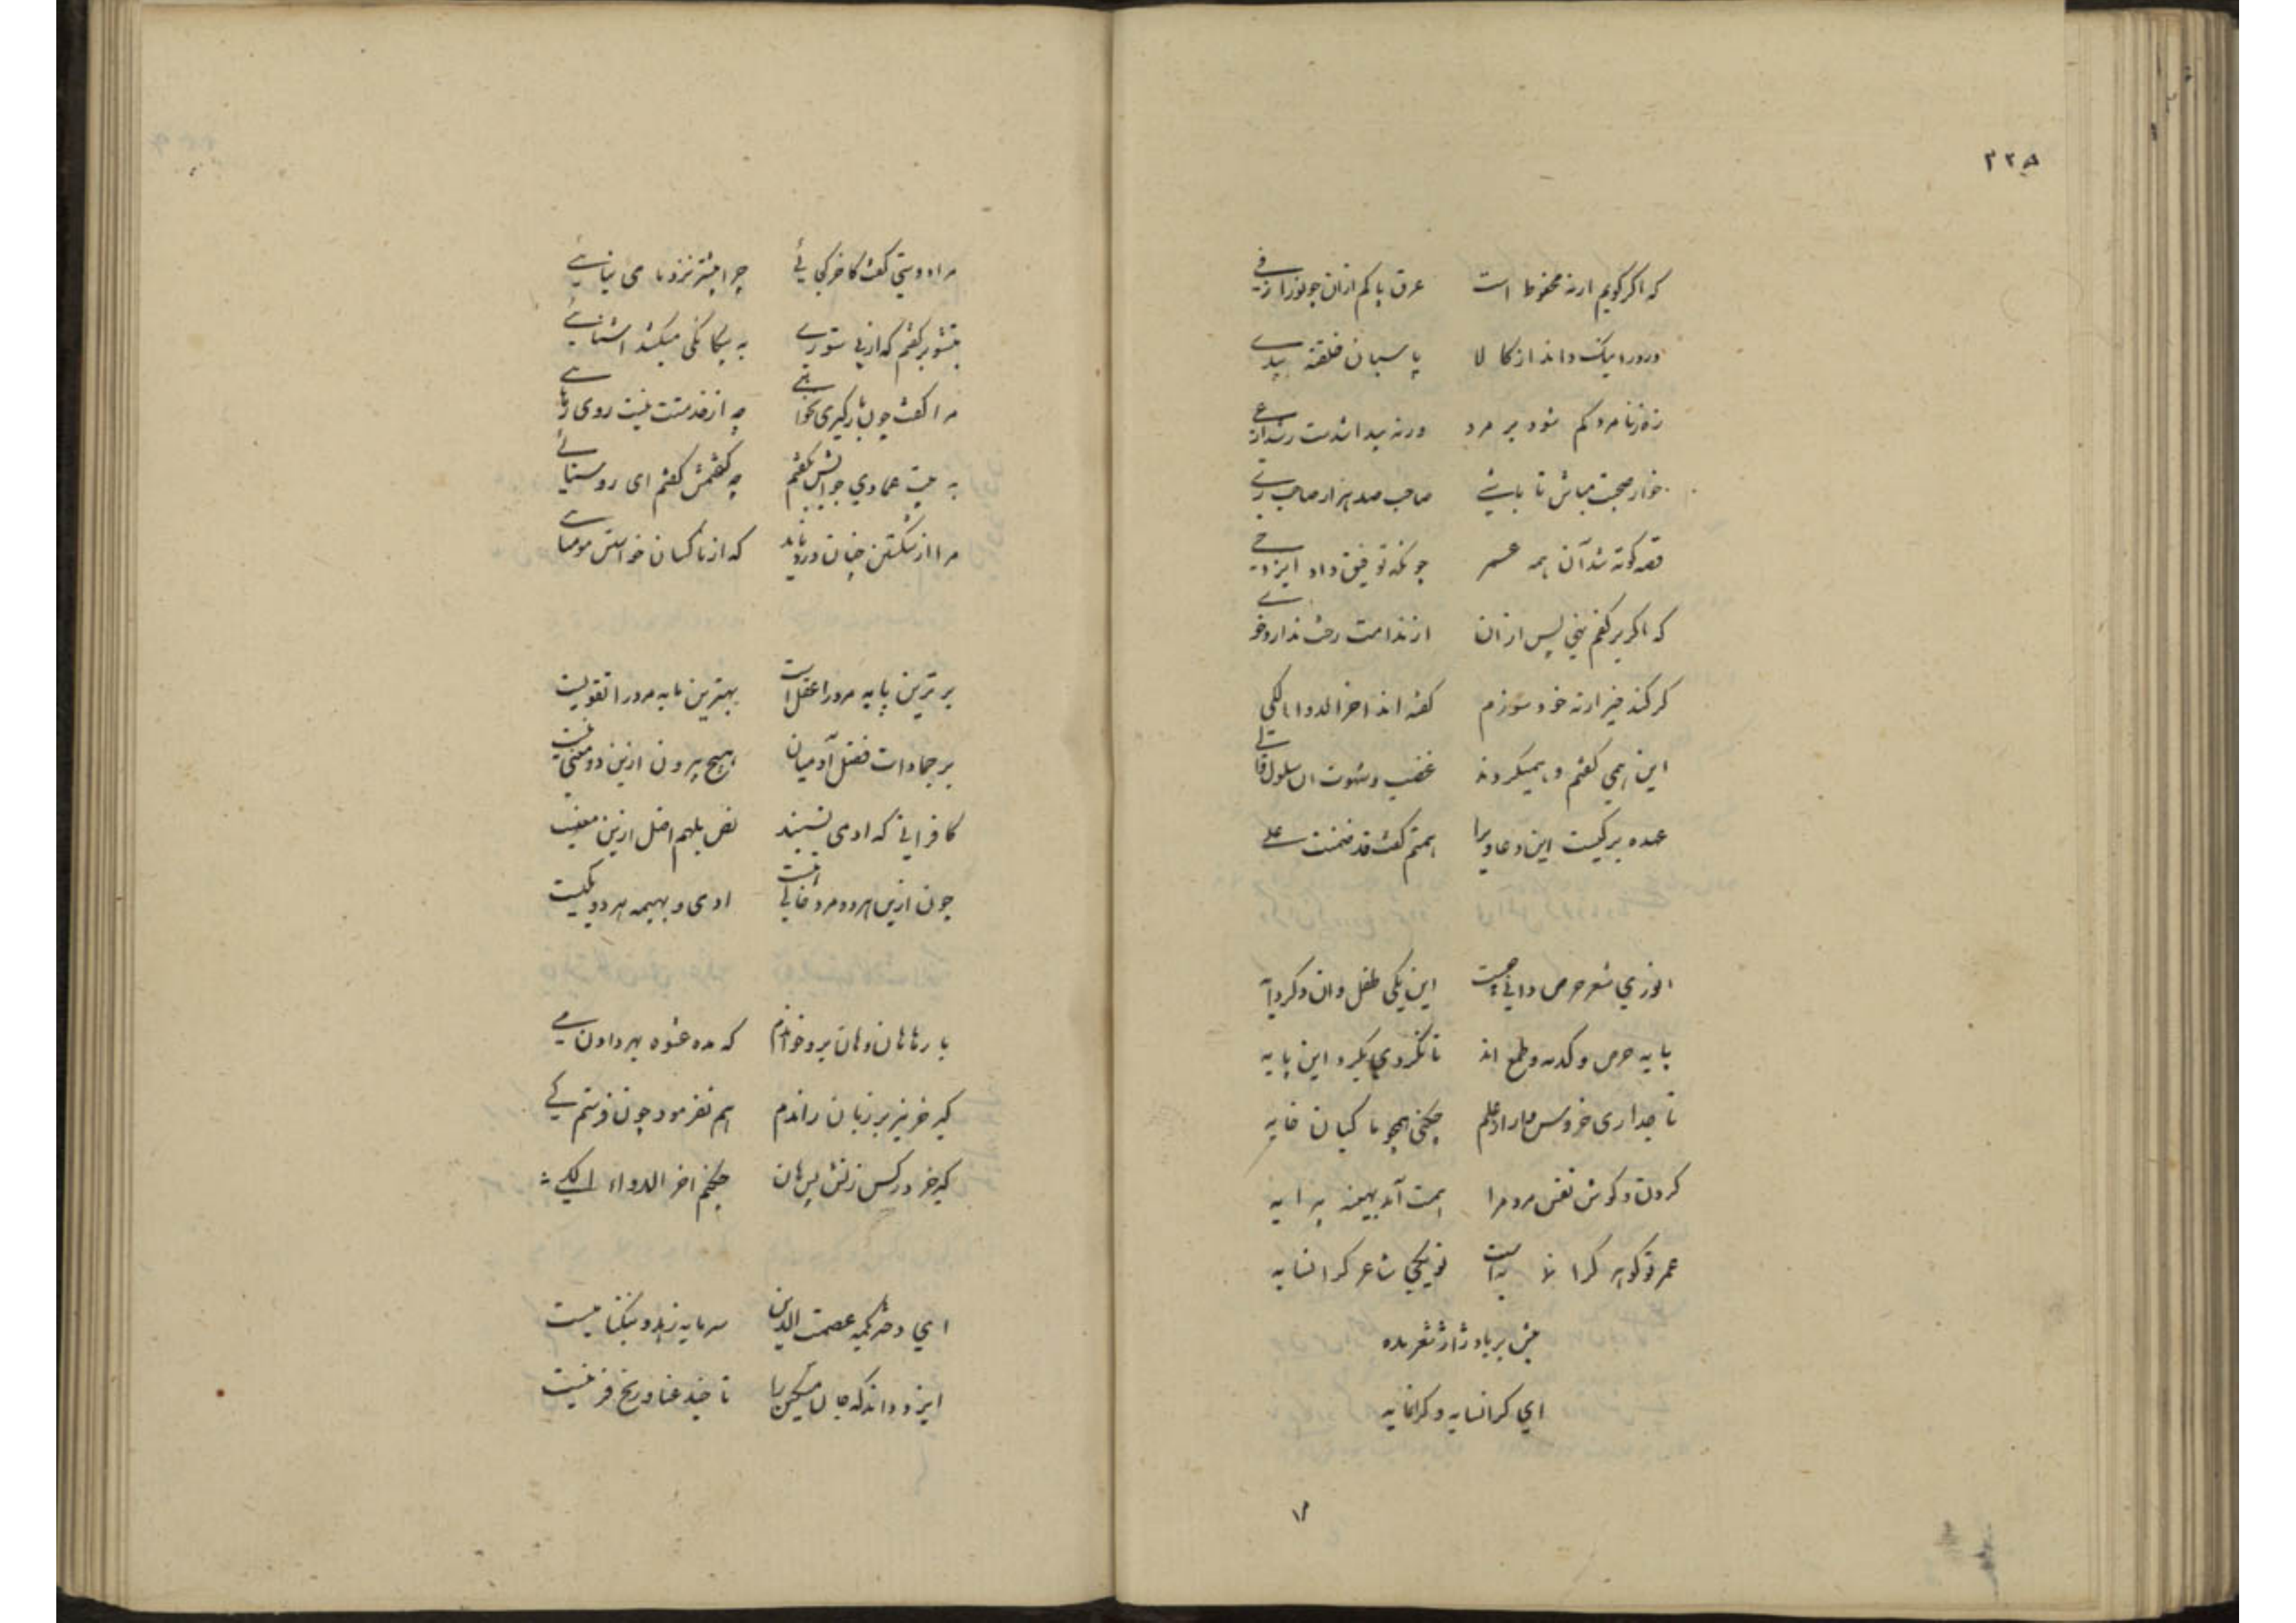 ۲۲۵
که اگر گویم ارنه محفوظ است عرق پاکم ازان جو
ورورا نیک داند از کالا پاسبان
زن نامرد کم شود بر مرد ورنه پیدا شدست
خوار صحبت مباش تا باشی صاحب صد هزار صاحب
قصه کوته شد آن همه عسر چونکه توفیق داد ایزد
که اگر بر کفم نهی پس ازان از ندامت
گر کند خیر ارنه خود سوزم گفته اند اخر الدوا الکی
این همی گفتم و همیکردند غضب و شهوت
عهده بر کیست این دعاوی را همتم گفت قد ضمنت علی
انوری شعر حرص دانی چیست این یکی طفل وان دگر دایه
پایه حرص و کدیه و طمع اند تا نگردی بگرد این پایه
تاجداری خروس وار از علم چکنی همچو ماکیان خایه
گردن و گوش نفس مردم را همت آمد بهینه پیرایه
عمر تو گوهر گرانمایه است تو یکی شاعر گرانسایه
بیش بر باد ژاژ شعر مده
ای گرانسایه و گرانمایه
مرا دوستی گفت کاخر کجائی چرا بیشتر نزد ما می نیائی
بتشویر گفتم که از بی ستوری به بیگانگی میکشد اشنائی
مرا گفت چون بارگیری نخواهی چه از خدمتت نیست روی رهائی
به بیت عمادی جوابش بگفتم چه گفتمش گفتم ای روستائی
مرا از شکستن چنان درد ناید که از ناکسان خواستن مومیائی
برترین پایه مرد را عقل است بهترین مایه مرد را تقویست
بر جمادات فضل آدمیان هیچ بیرون ازین دو معنی نیست
کافرانی که ادمی نسبند نص بلهم اضل ازین معنیست
چون ازین هر دو مرد خالی گشت ادمی و بهیمه هر دو یکیست
بارها هان و هان برو خواندم که مده عشوه بهر دادن می
کیر خر نیز بر زبان راندم هم نفرمود چون فرستم کی
کیر خر در کس زنش پس هان چکنم اخر الدواء الکی
ای دختر کیه عصمت الدین سرمایه زهد و نیکنامیست
ایزد داند که جان مسکین را تا چند عنا و رنج فرضیست